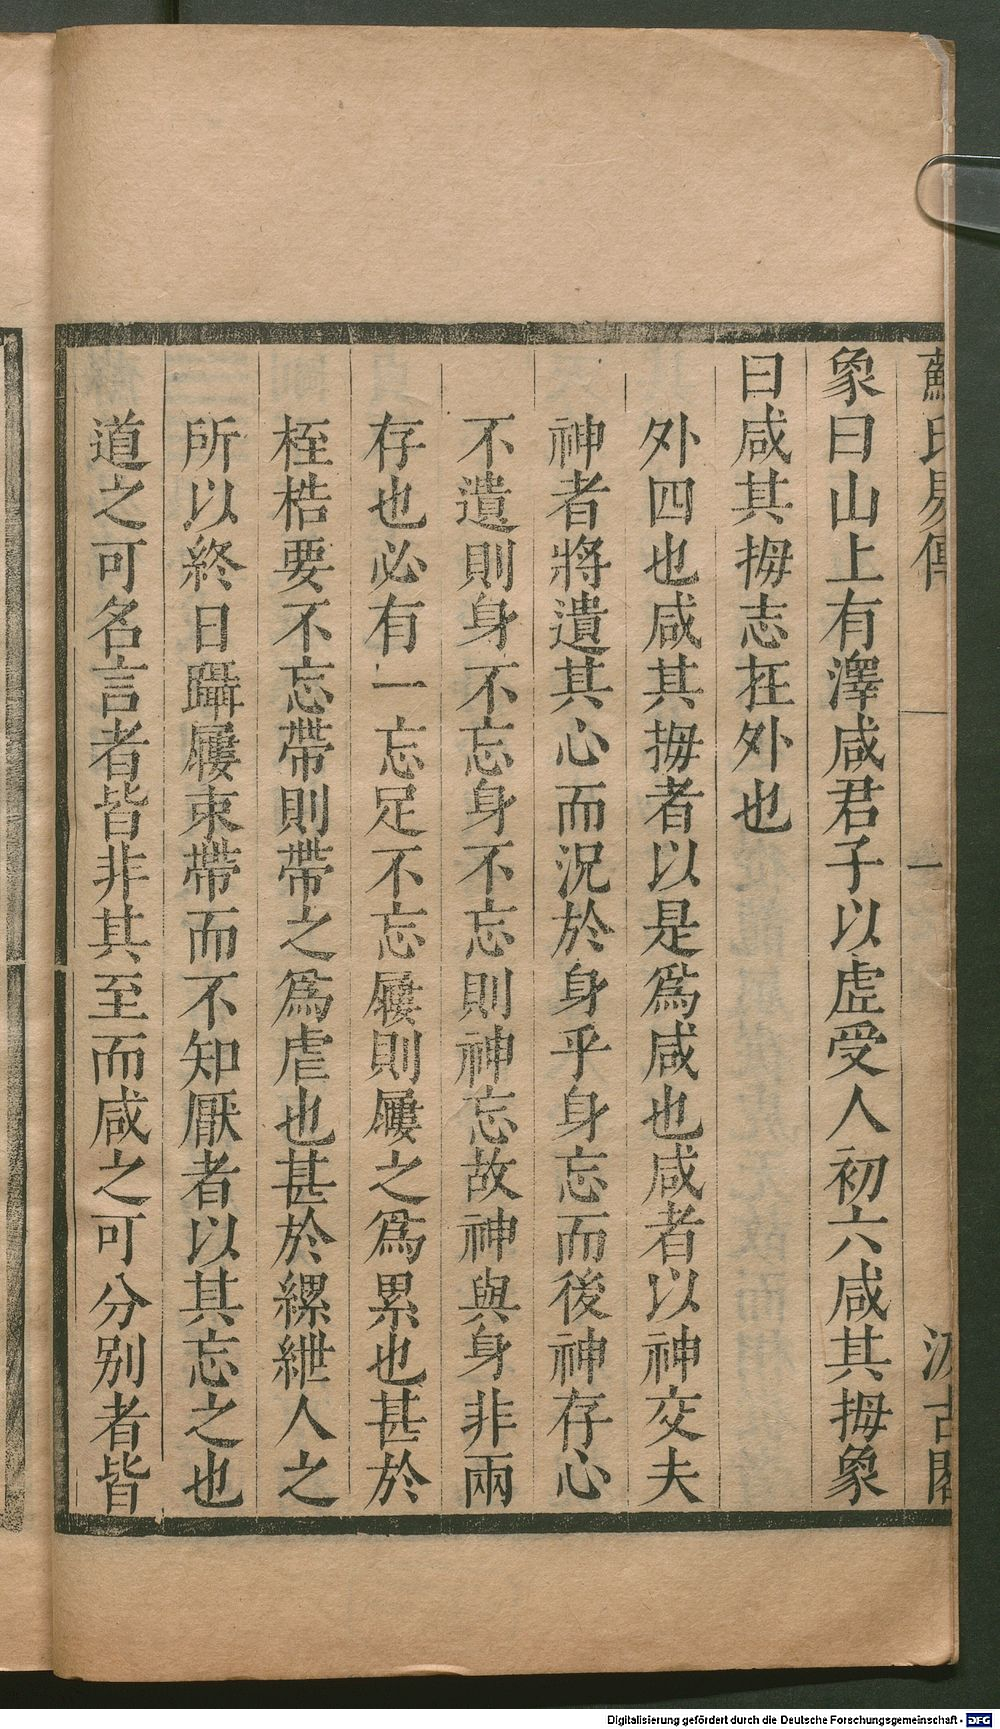 蘇氏易傳 一 汲古閣
象曰山上有澤咸君子以虛受人初六咸其拇象
曰咸其拇志在外也
外四也咸其拇者以是爲咸也咸者以神交夫
神者將遺其心而況於身乎身忘而後神存心
不遺則身不忘身不忘則神忘故神與身非兩
存也必有一忘足不忘屨則屨之爲累也甚於
桎梏要不忘帶則帶之爲虐也甚於縲紲人之
所以終日躡屨束帶而不知厭者以其忘之也
道之可名言者皆非其至而咸之可分别者皆
Digitalisierung gefördert durch die Deutsche Forschungsgemeinschaft - DFG